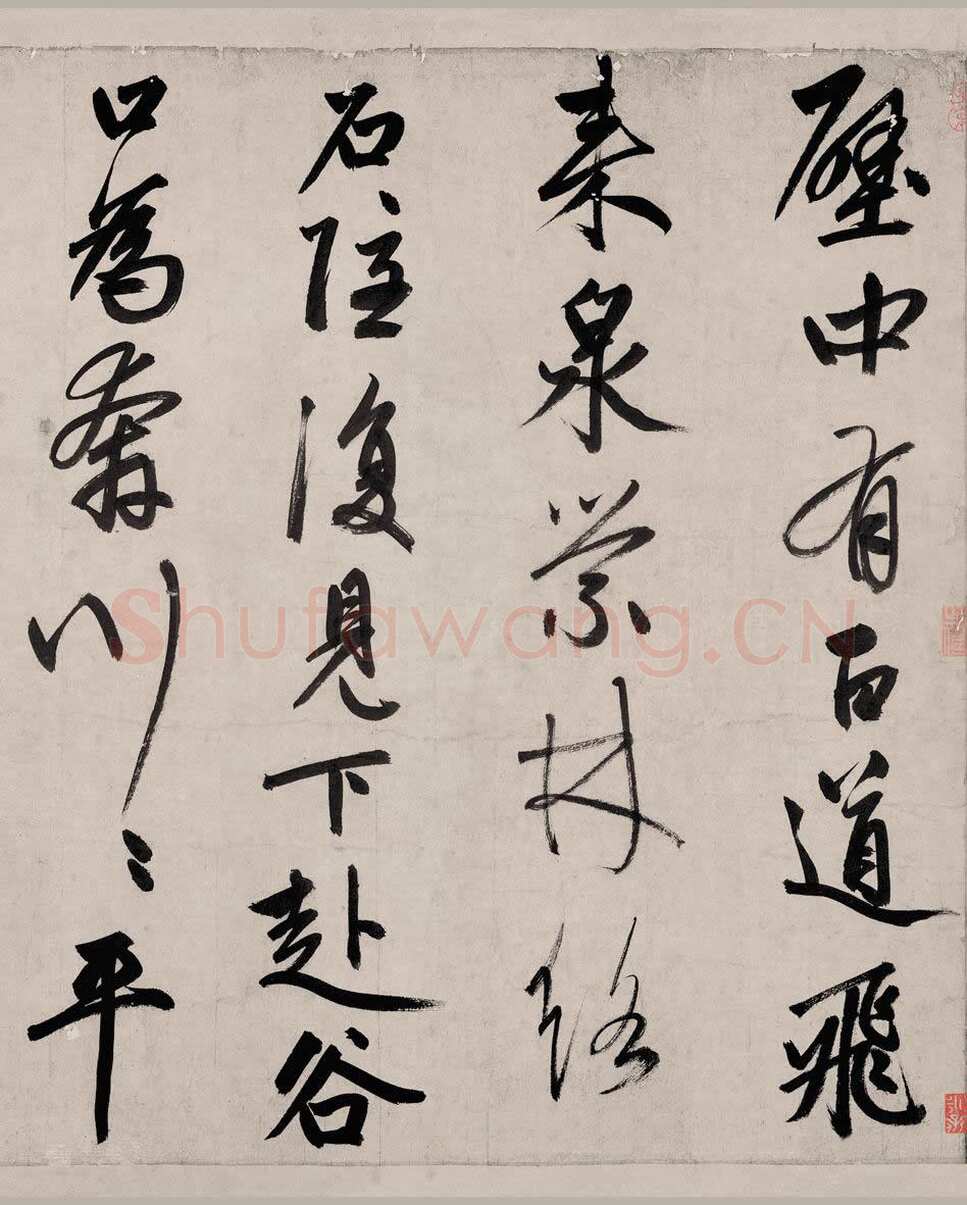 壁中有百道飛
来泉縈林絡
石隱復見下赴谷
口為奔川〻平
Shufawang.CN